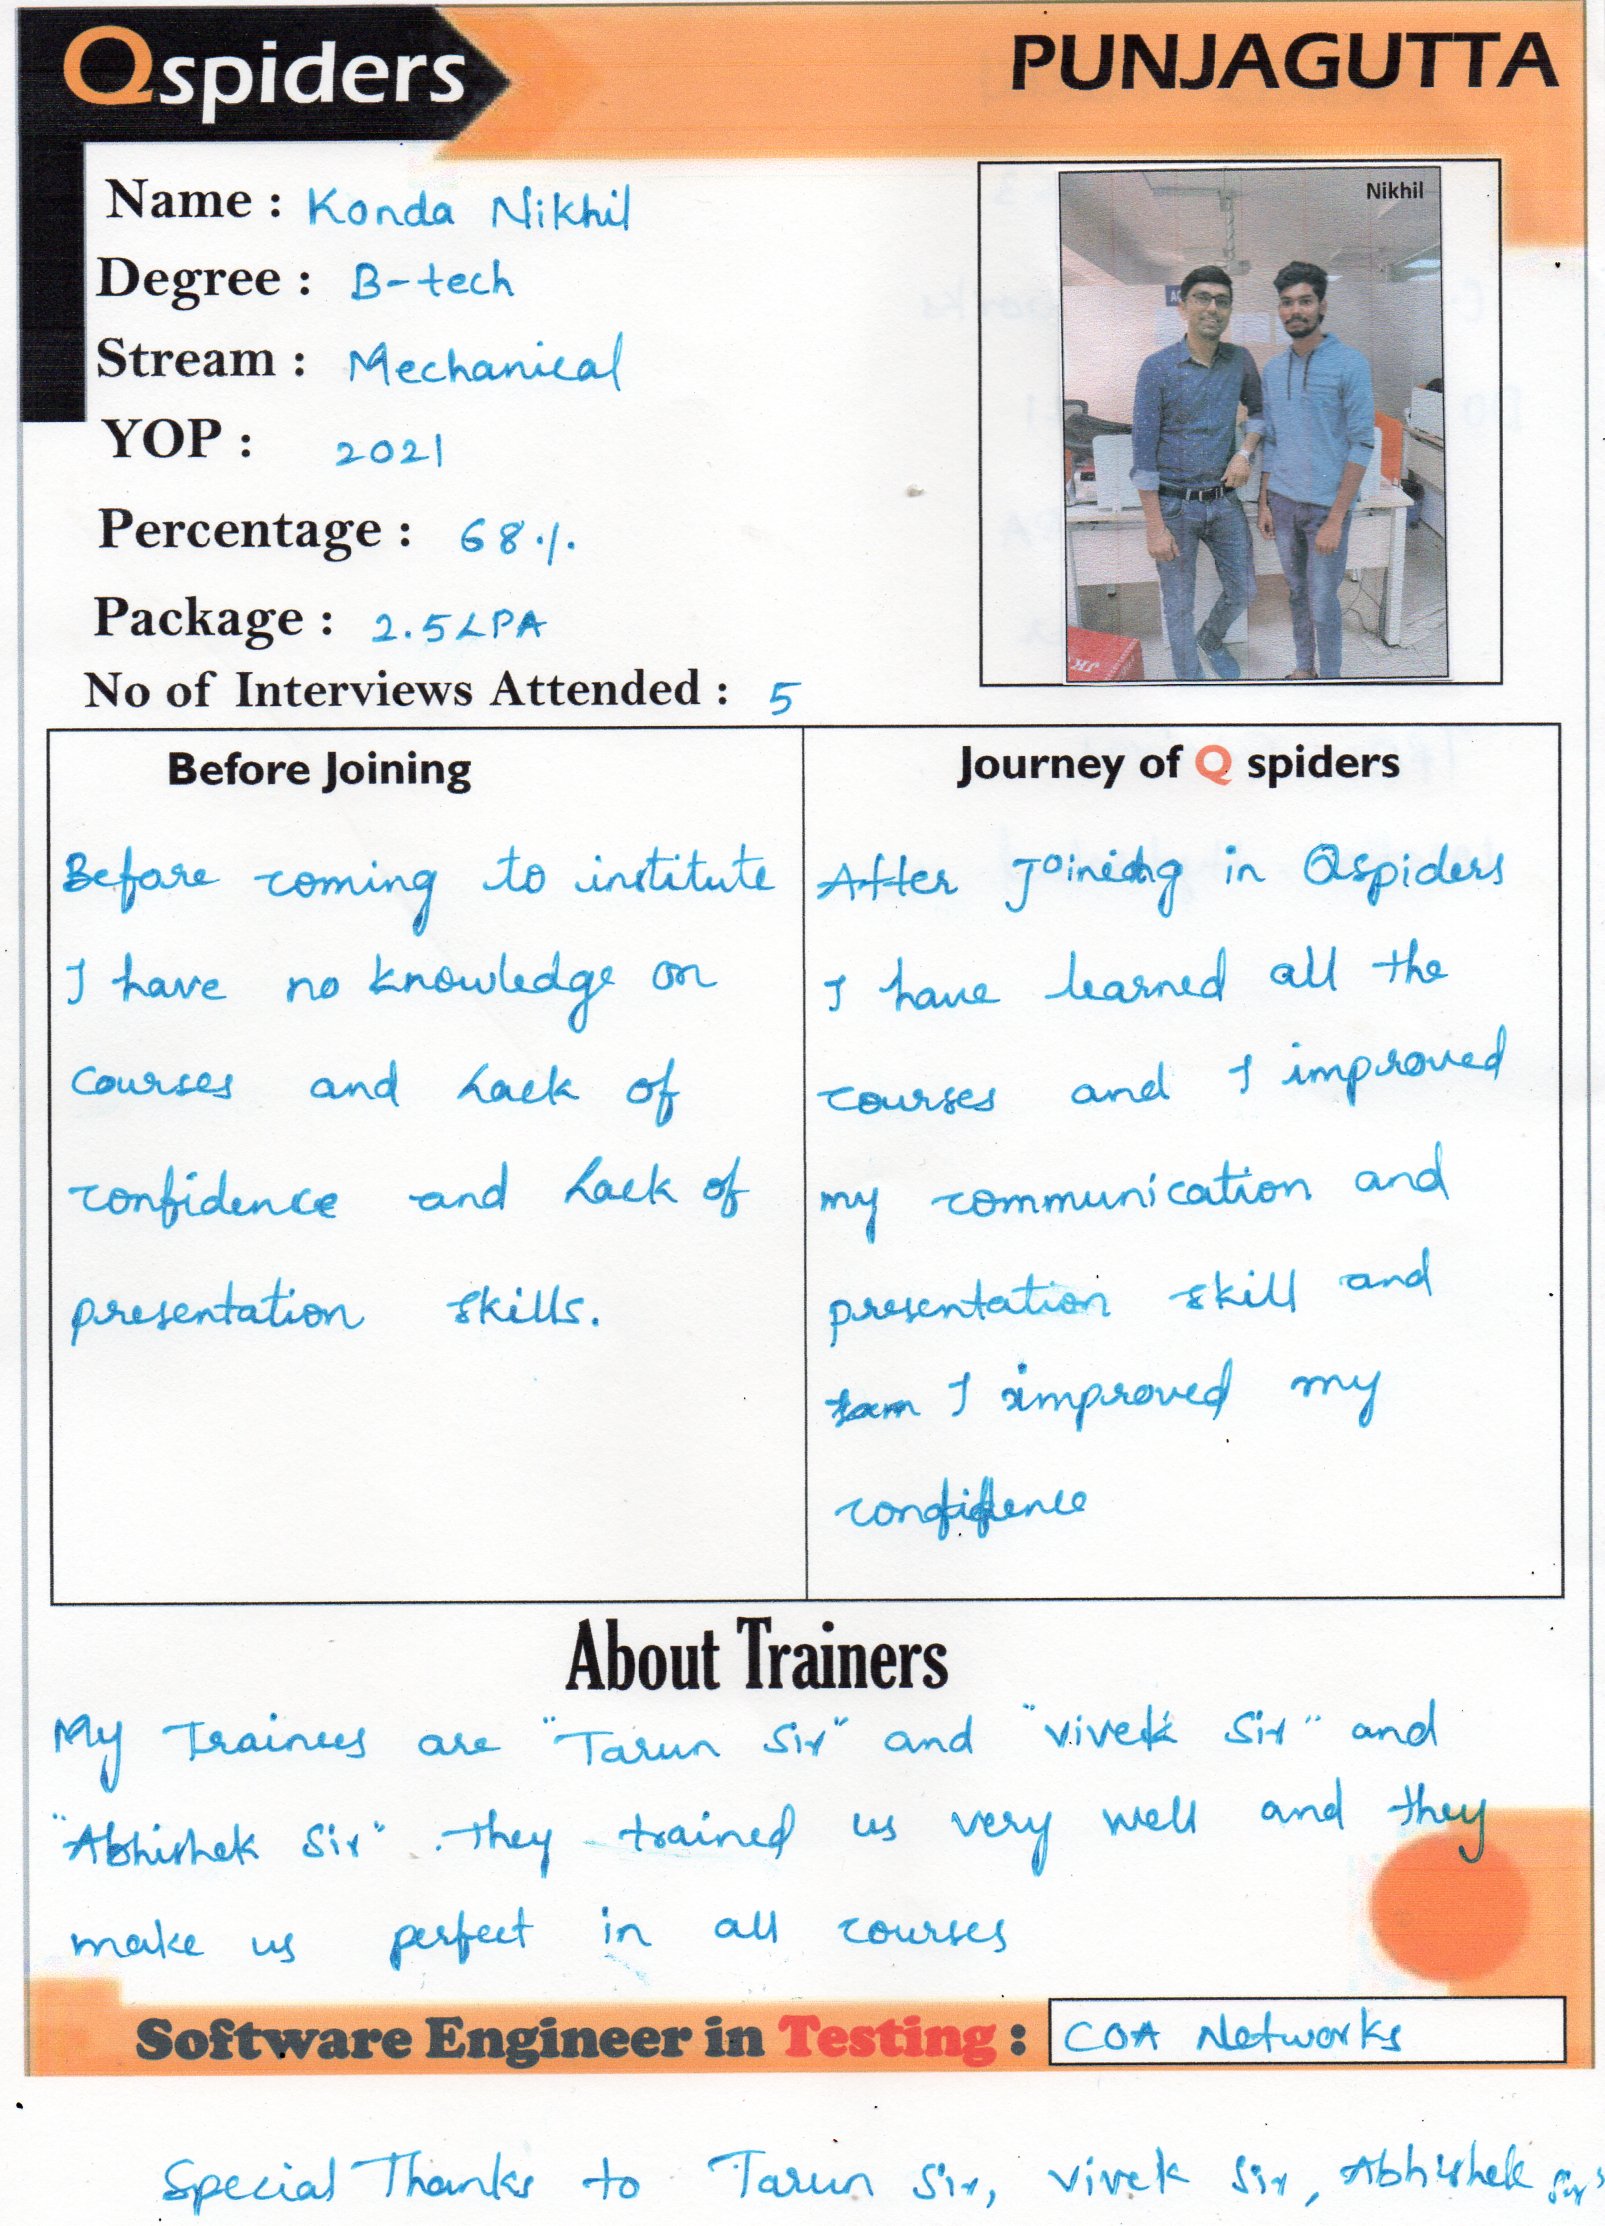 Qspiders
PUNJAGUTTA
Name : Konda Nikhil
Degree : B-tech
Stream : Mechanical
YOP : 2021
Percentage : 68 %
Package : 2.5 LPA
No of Interviews Attended : 5
Nikhil
Before Joining
Before coming to institute
I have no knowledge on
courses and Lack of
confidence and Lack of
presentation skills.
Journey of Q spiders
After Joining in Qspiders
I have learned all the
courses and I improved
my communication and
presentation skill and
I improved my
confidence
About Trainers
My Trainees are "Tarun Sir" and "Vivek Sir" and
"Abhishek Sir". They trained us very well and they
make us perfect in all courses
Software Engineer in Testing : COA Networks
Special Thanks to Tarun Sir, Vivek Sir, Abhishek Sir